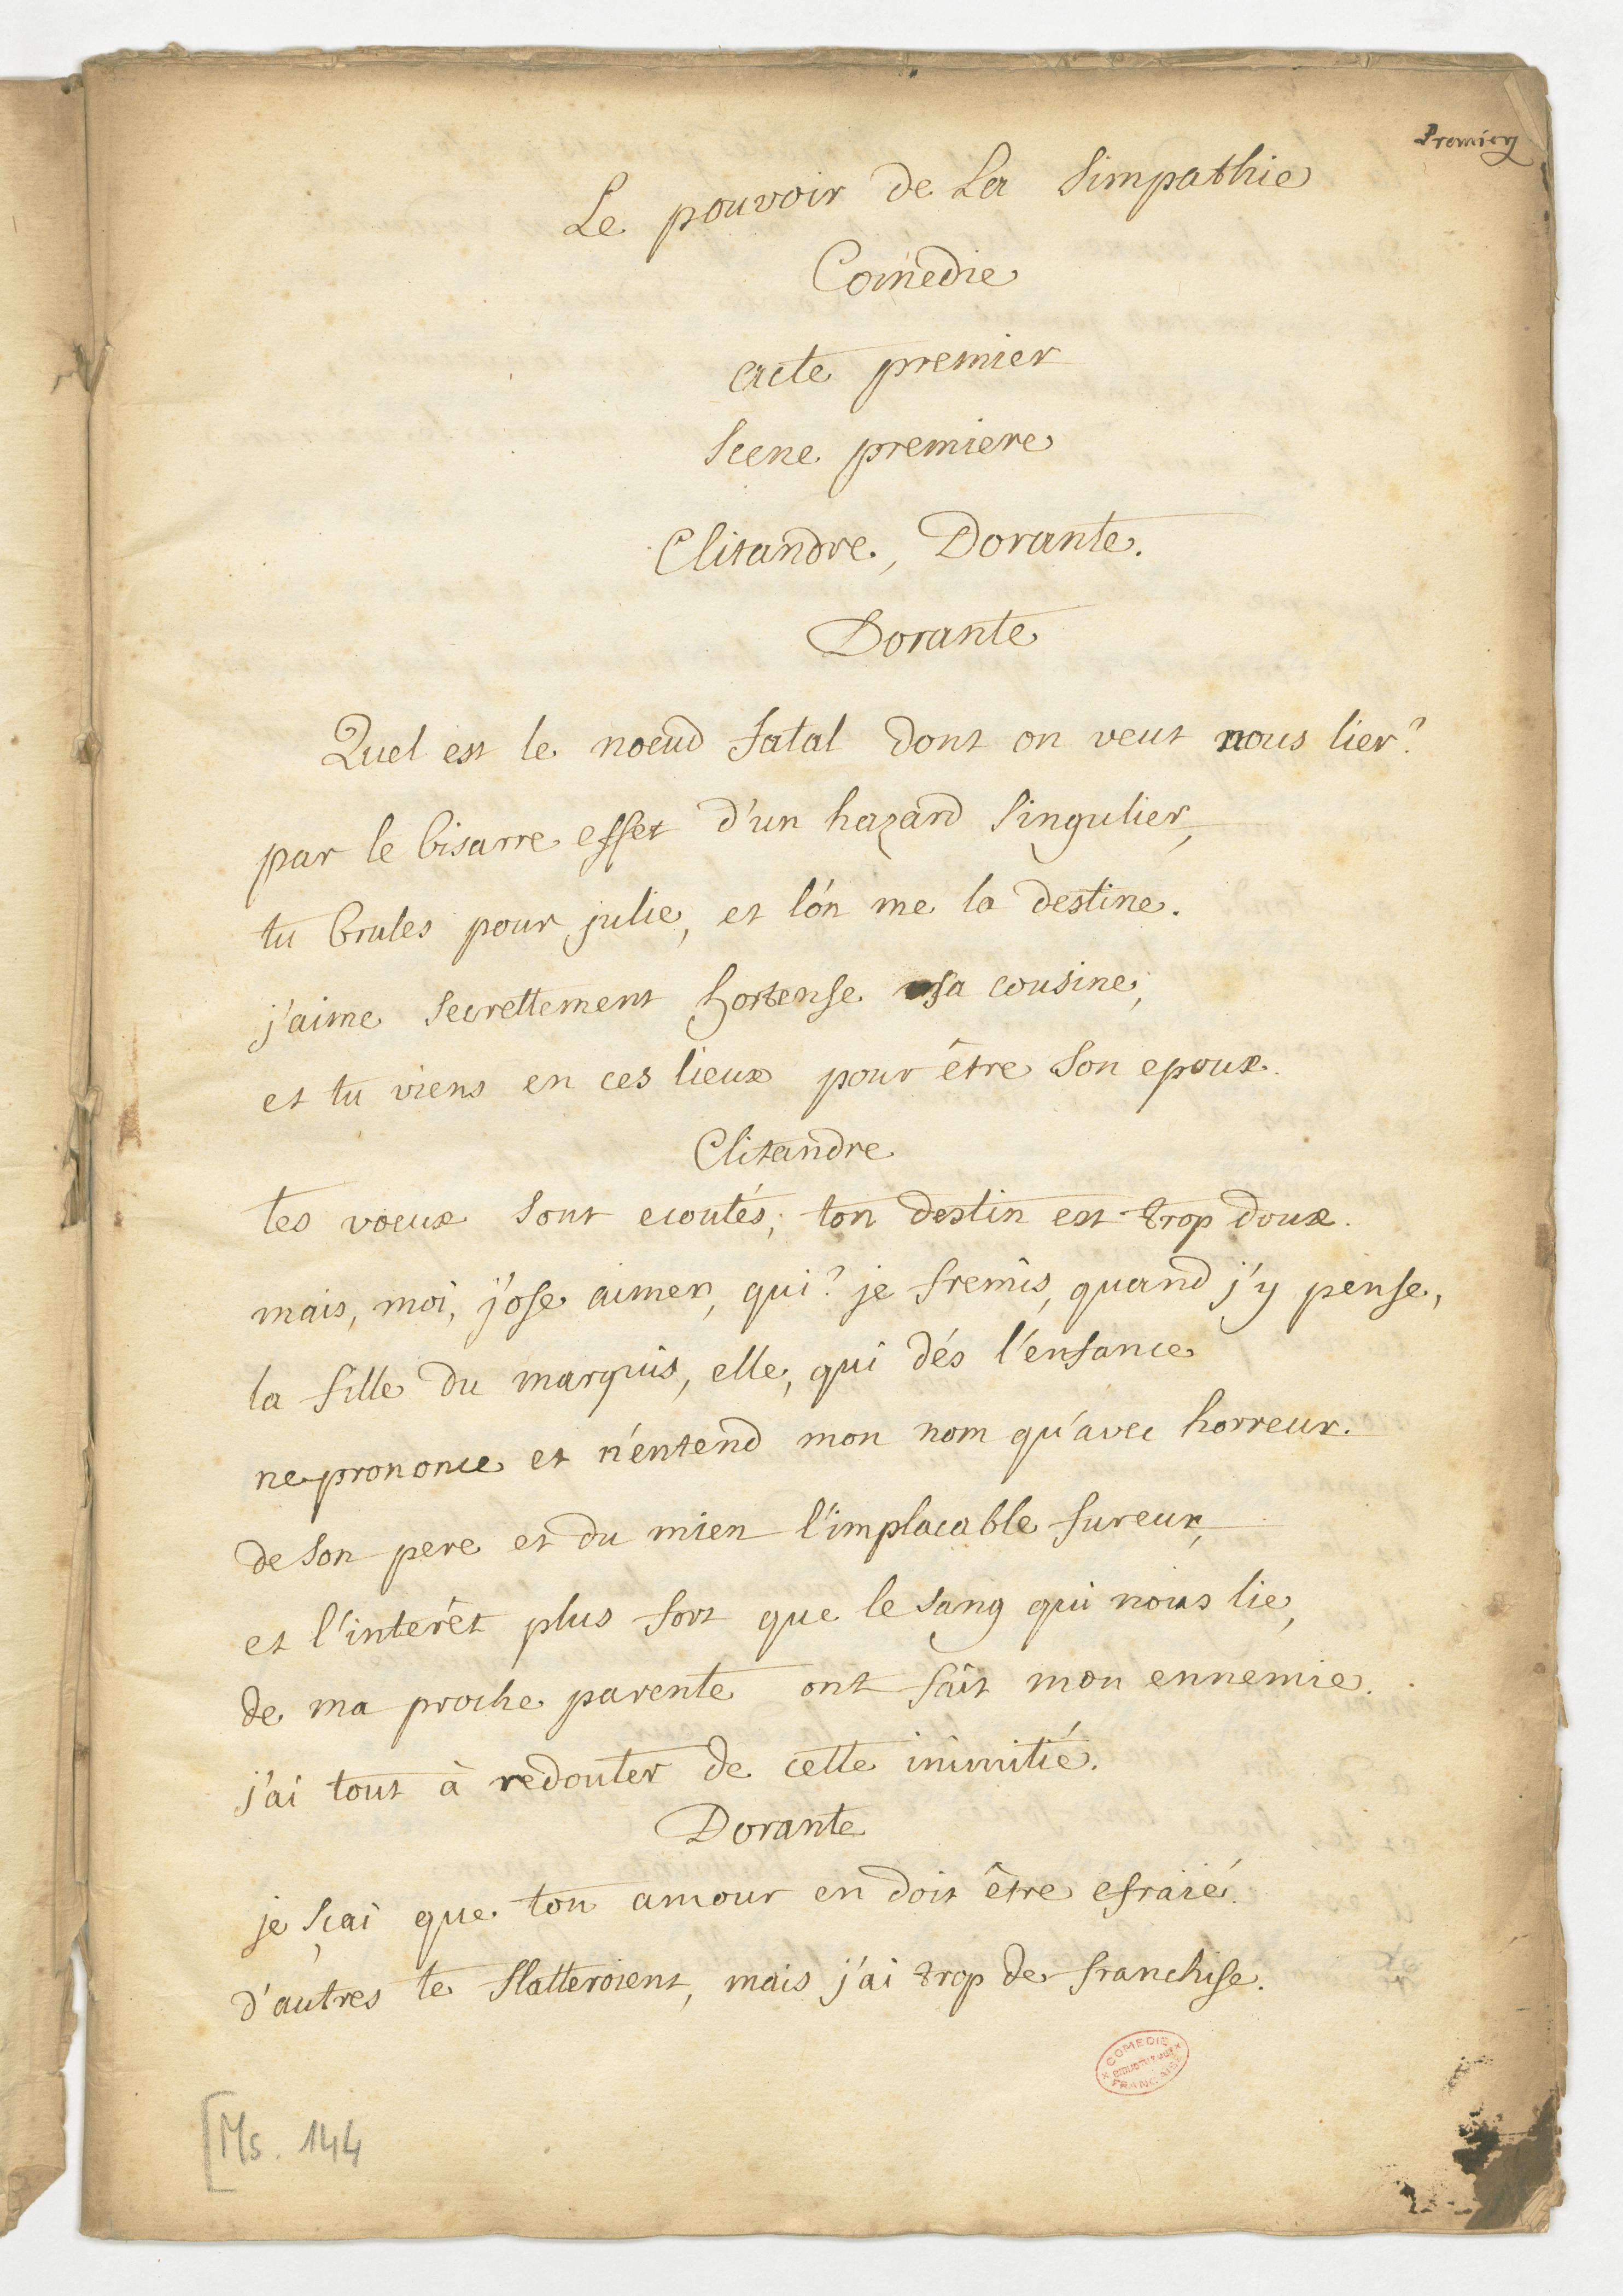 Premier
Le pouvoir de La Simpathie
Comedie
acte premier
Scene premiere
Clitandre, Dorante.
Dorante
Quel est le noeud fatal dont on veut nous lier?
par le bisarre effet d'un hazard singulier,
tu brules pour julie, et l'on me la destine.
j'aime secrettement hortense sa cousine,
et tu viens en ces lieux pour être son epoux.
Clitandre
tes voeux sont ecoutés; ton destin est trop doux.
mais, moi, j'ose aimer, qui? je fremis, quand j'y pense,
la fille du marquis, elle, qui dés l'enfance
ne prononce et n'entend mon nom qu'avec horreur.
de son pere et du mien l'implacable fureur,
et l'interêt plus fort que le sang qui nous lie,
de ma proche parente ont fait mon ennemie.
j'ai tout à redouter de cette inimitié.
Dorante
je sçai que ton amour en doit être efraié.
d'autres te flatteroient, mais j'ai trop de franchise.
COMEDIE
BIBLIOTHEQUE
FRANCAISE
[Ms. 144